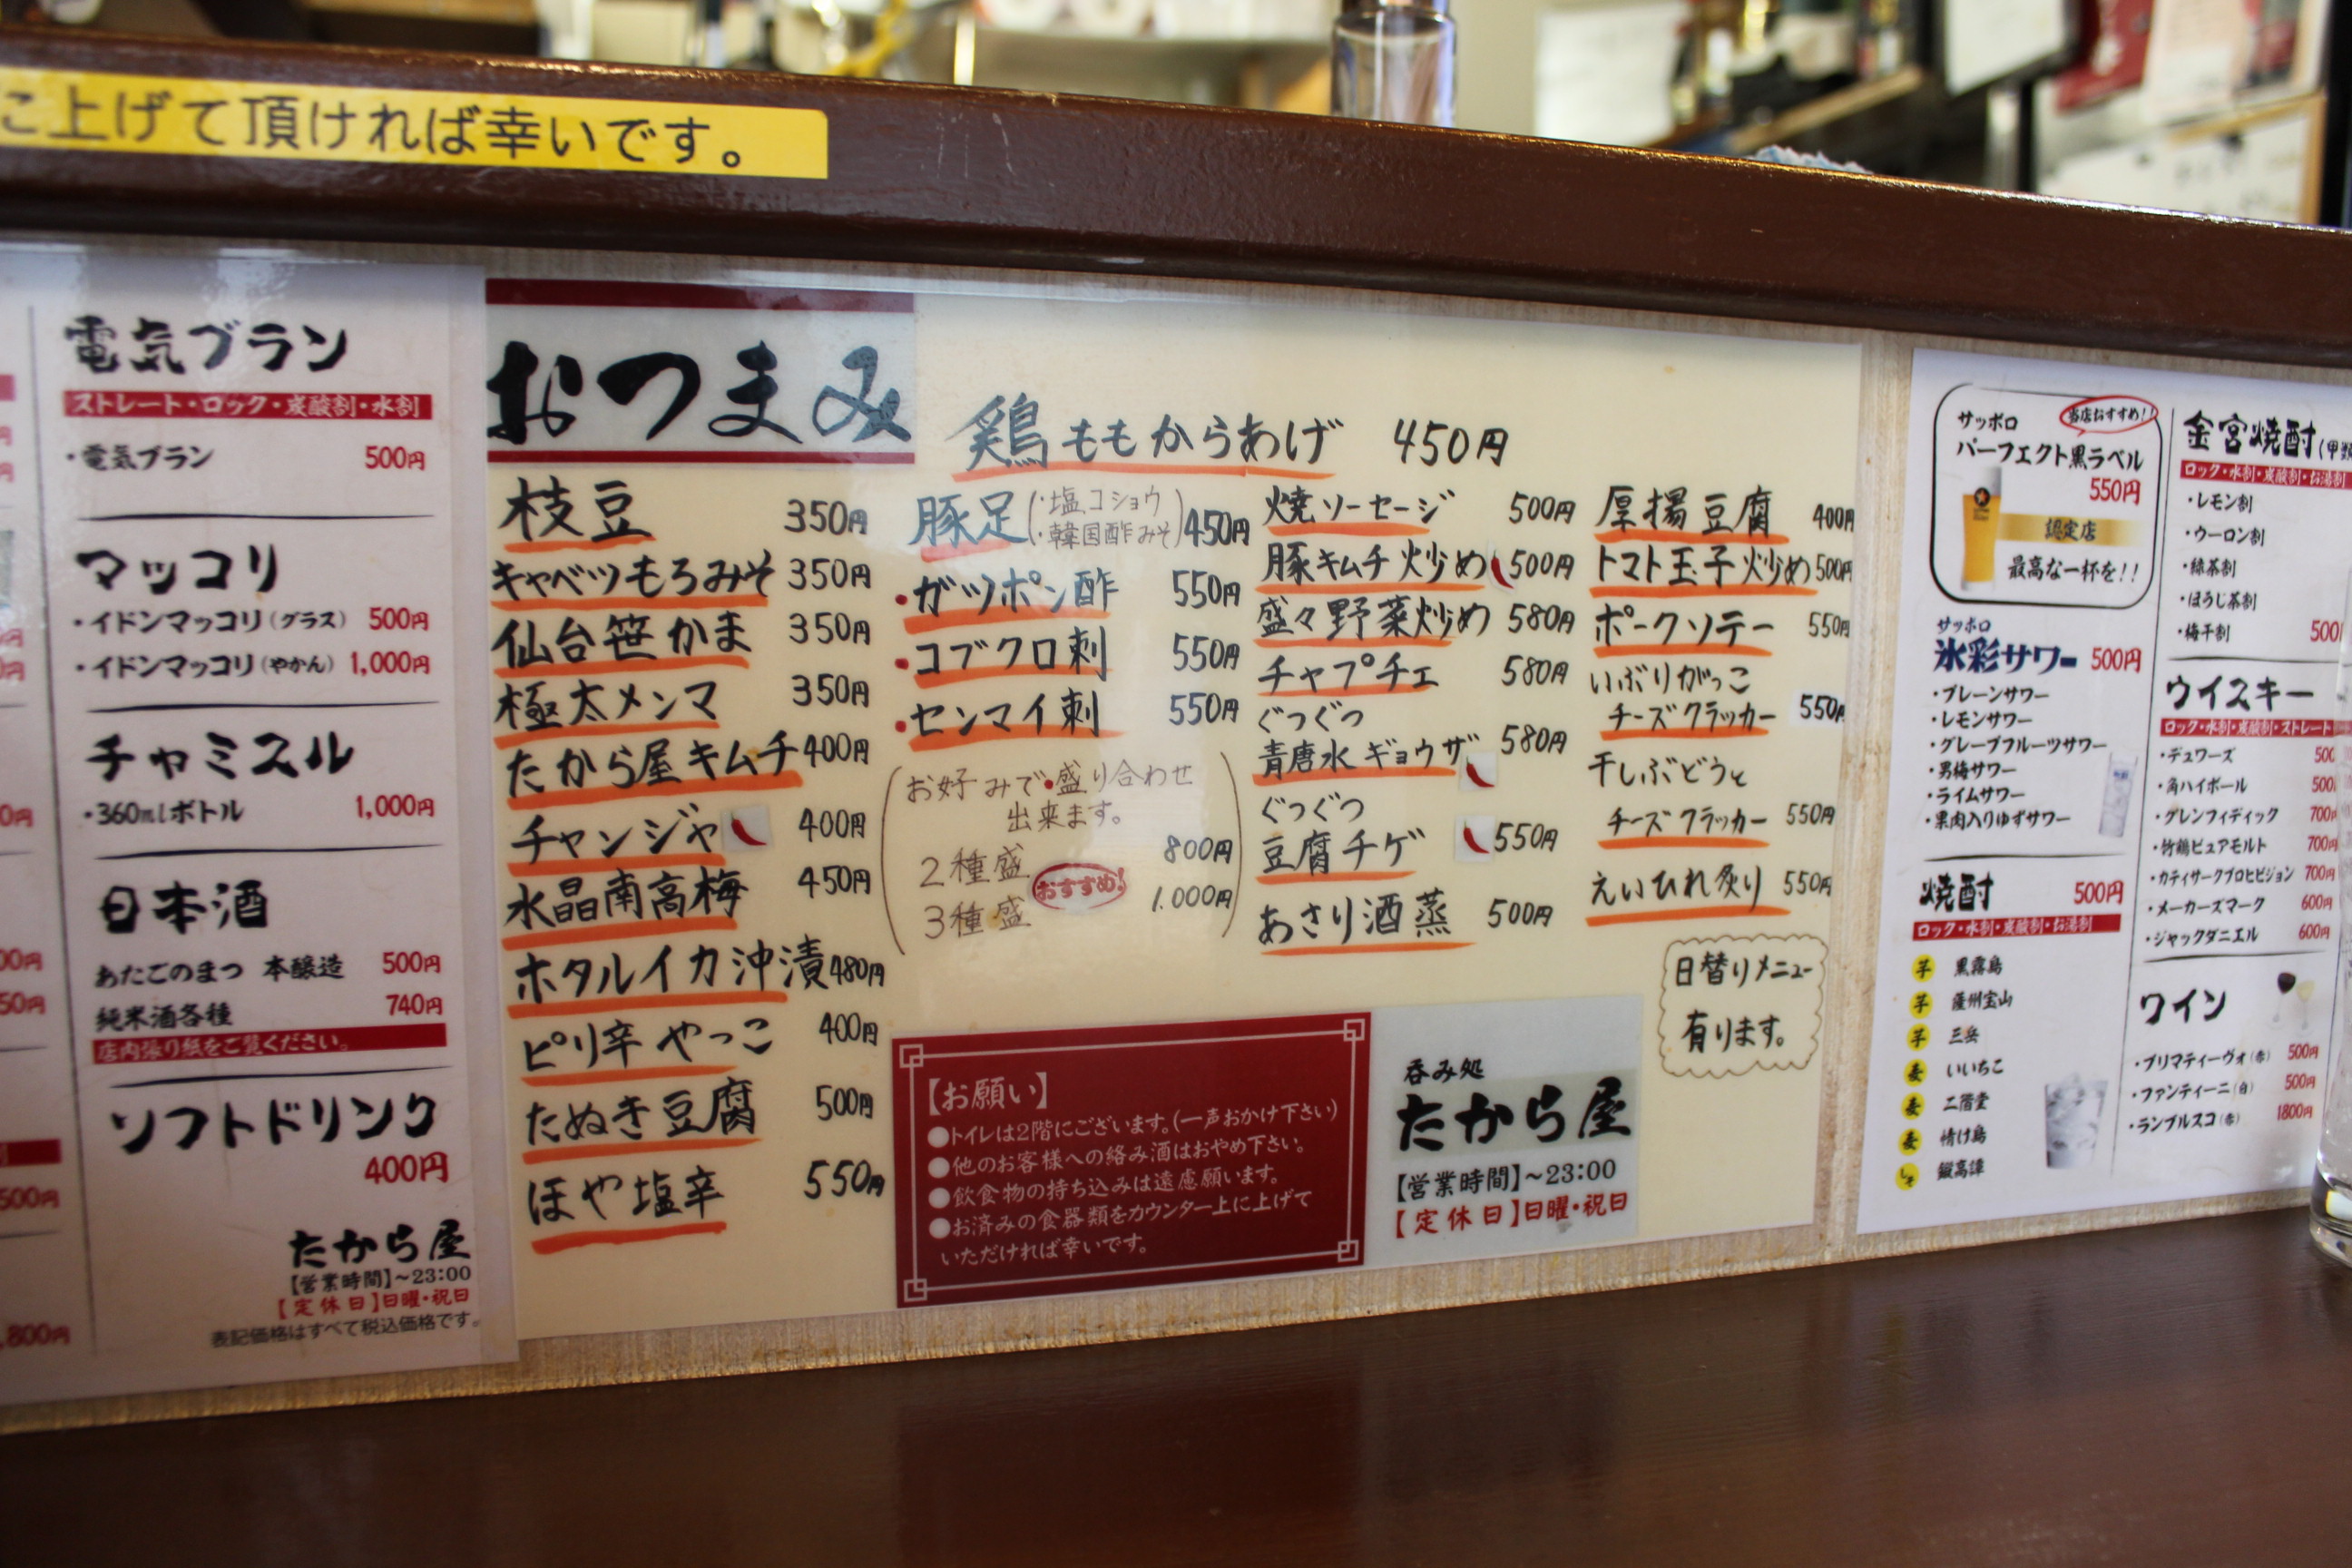 こ上げて頂ければ幸いです。
電気ブラン
ストレート・ロック・炭酸割・水割
・電気ブラン 500円
マッコリ
・イドンマッコリ(グラス) 500円
・イドンマッコリ(やかん) 1,000円
チャミスル
・360mlボトル 1,000円
日本酒
あたごのまつ 本醸造 500円
純米酒各種 740円
店内張り紙をご覧ください。
ソフトドリンク
400円
たから屋
【営業時間】～23:00
【定休日】日曜・祝日
表記価格はすべて税込価格です。
500円
,800円
おつまみ
枝豆 350円
キャベツもろみそ 350円
仙台笹かま 350円
極太メンマ 350円
たから屋キムチ 400円
チャンジャ 400円
水晶南高梅 450円
ホタルイカ沖漬 480円
ピリ辛やっこ 400円
たぬき豆腐 500円
ほや塩辛 550円
鶏ももからあげ 450円
豚足(・塩コショウ ・韓国酢みそ) 450円
・ガツポン酢 550円
・コブクロ刺 550円
・センマイ刺 550円
(お好みで・盛り合わせ
出来ます。
2種盛 800円
おすすめ!
3種盛 1.000円)
焼ソーセージ 500円
豚キムチ炒め 500円
盛々野菜炒め 580円
チャプチェ 580円
ぐつぐつ
青唐水ギョウザ 580円
ぐつぐつ
豆腐チゲ 550円
あさり酒蒸 500円
厚揚豆腐 400円
トマト玉子炒め 500円
ポークソテー 550円
いぶりがっこ
チーズクラッカー 550円
干しぶどうと
チーズクラッカー 550円
えいひれ炙り 550円
日替りメニュー
有ります。
【お願い】
●トイレは2階にございます。(一声おかけ下さい)
●他のお客様への絡み酒はおやめ下さい。
●飲食物の持ち込みは遠慮願います。
●お済みの食器類をカウンター上に上げて
いただければ幸いです。
呑み処
たから屋
【営業時間】～23:00
【定休日】日曜・祝日
サッポロ
当店おすすめ!!
パーフェクト黒ラベル
550円
認定店
最高な一杯を!!
サッポロ
氷彩サワー 500円
・プレーンサワー
・レモンサワー
・グレープフルーツサワー
・男梅サワー
・ライムサワー
・果肉入りゆずサワー
焼酎 500円
ロック・水割・炭酸割・お湯割
芋 黒霧島
芋 薩州宝山
芋 三岳
麦 いいちこ
麦 二階堂
麦 情け島
しそ 鍛高譚
金宮焼酎(甲類
ロック・水割・炭酸割・お湯割
・レモン割
・ウーロン割
・緑茶割
・ほうじ茶割
・梅干割 500
ウイスキー
ロック・水割・炭酸割・ストレート
・デュワーズ 500
・角ハイボール 500
・グレンフィディック 700
・竹鶴ピュアモルト 700円
・カティサークプロヒビジョン 700円
・メーカーズマーク 600円
・ジャックダニエル 600円
ワイン
・プリマティーヴォ(赤) 500円
・ファンティーニ(白) 500円
・ランブルスコ(赤) 1800円